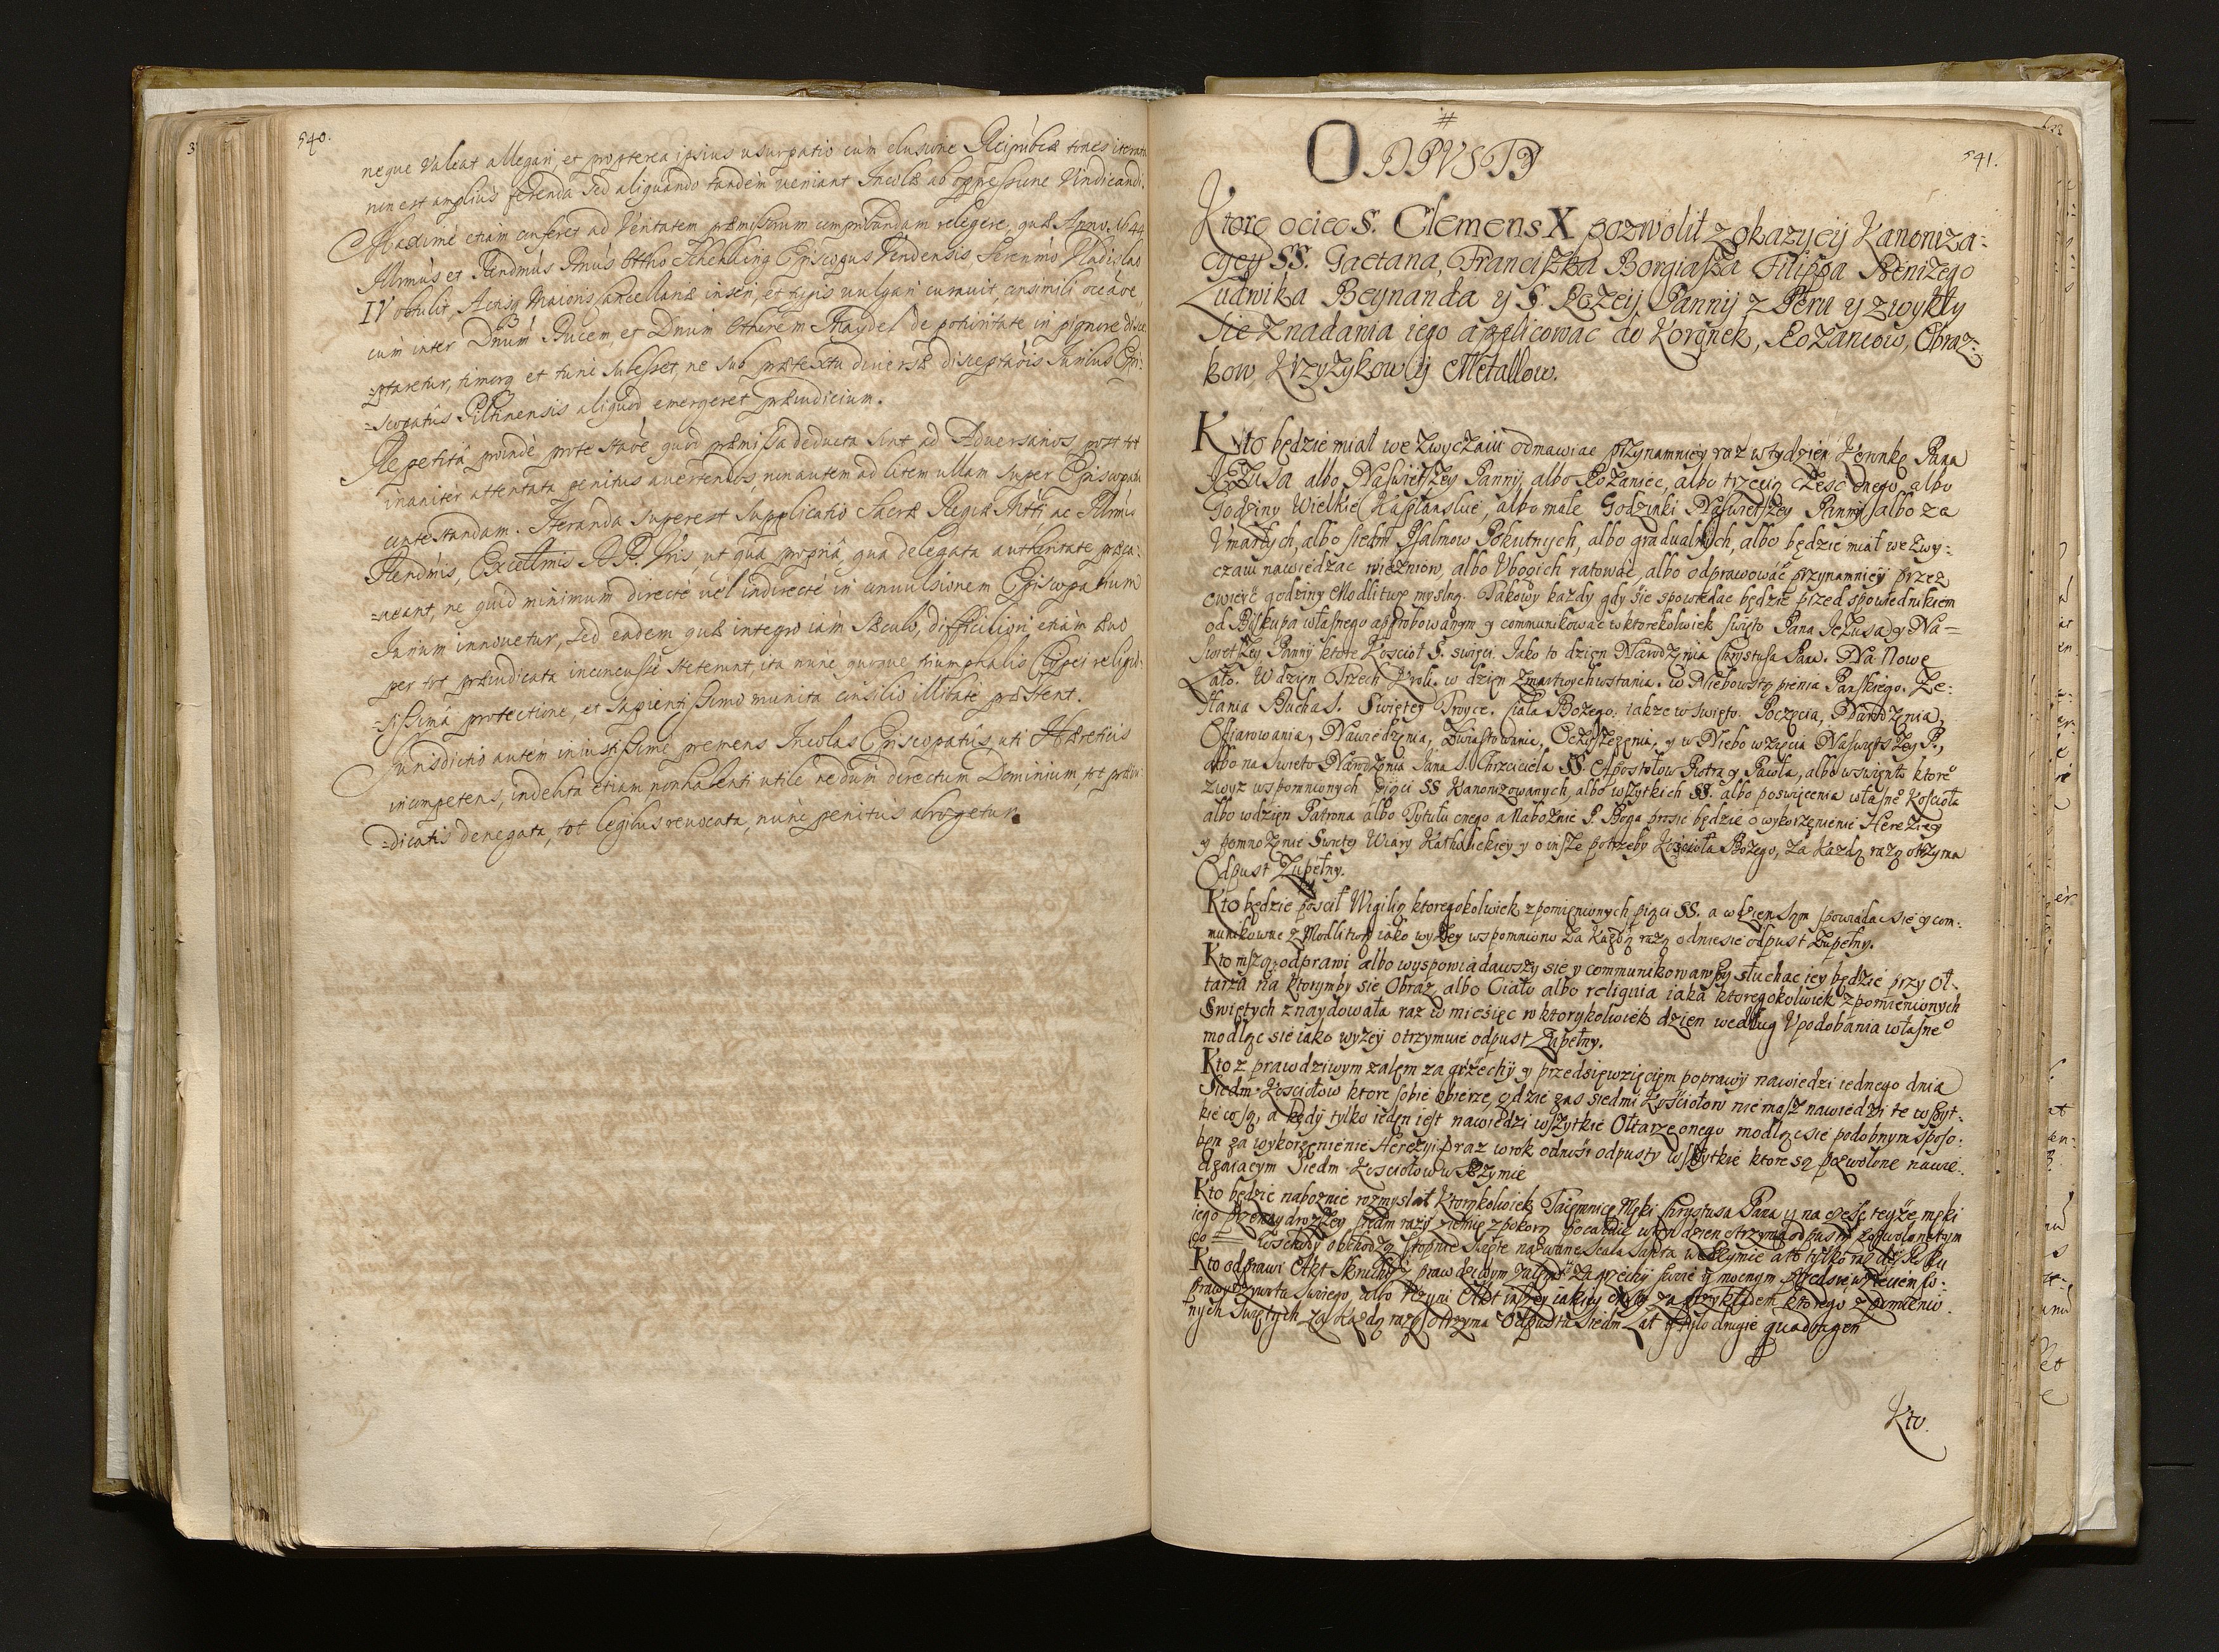 540.
neque valeat allegari, et propterea ipsius usurpatio cum elusione Reipublicæ toties iterata
non est amplius ferenda sed aliquando tandem veniant Incolæ ab oppressione Vindicandi.
Maxime etiam conferet ad Veritatem præmissorum comprobandam relegere, quæ Anno 1644
Illrmus et Rendmus Dnus Ottho Schenking Episcopus Vendensis Serenmo Vladislao
IV obtulit, Actisq Maioris Cancellariæ inseri, et typis vulgari curavit, consimili occaõe
cum inter Dnum Ducem, et Dnum Otthonem Maydel de potioritate in pignore disce
=ptaretur, timorq et tunc subesset, ne sub prætextu diversæ disceptaõis Iuribus Epi:
=scopatus Piltinensis aliquod emergeret præiudicium.
Repetitâ proinde protestaõe, quod præmissa deducta sint ad Adversarios post tot
inaniter attentata penitus avertendos, non autem ad litem ullam super Episcopatu
contestandam. Iteranda superest supplicatio Sacræ Regiæ Mtti, ac Illrmis
Rendmis, Excellmis D.D. Vris, ut qua propriâ, qua delegata authoritate præca:
=veant, ne quid minimum directe vel indirecte in convulsionem Episcopalium
Iurium innovetur, sed eadem quæ integro iam sæculo, difficiliori etiam ævo
per tot præiudicata inconcusse steterunt, ita nunc quoque triumphalis Clypei religio-
=sissimâ protectione, et sapientissimo munita consilio illibate præstent.
Iurisdictio autem iniustissime premens Incolas Episcopatus, uti Hæreticis
incompetens, indebita etiam non habenti utile nedum directum Dominium, tot præiu:
=dicatis denegata, tot legibus revocata, nunc penitus abrogetur.
541.
#
ODPVSTY
Ktore ociec S. Clemens X pozwolił z okazyey Kanoniza:
cyey SS. Gaetana, Franciszka Borgiasza Filippa Benizego
Ludwika Beynanda y S. Rożeij, Pannij z Peru y zwykły
sie z nadania iego applicować do Koronek, Rożańcow, Obraz:
kow Krzyżykow ij Metallow.
Kto będzie miał we zwyczaiu odmawiac przynamniey raz w tydzień Koronkę Pana
JEzusa albo Naswiętszey Panny, albo Rożaniec, albo trzecią część onego, albo
Godziny Wielkie Kapłanskie, albo małe Godzinki Naswiętszey Panny albo za
Vmarłych, albo siedm Psalmow Pokutnych, albo gradualnych, albo będzie miał we zwy:
czaiu nawiedzac więzniow, albo Vbogich ratować, albo odprawować przynamniey przez
cwierć godziny Modlitwę myslną. Takowy każdy gdy sie spowiedac będzie przed spowiednikiem
od Biskupa własnego approbowanym y communikować w ktorekolwiek święto Pana Jezusa y Na=
swiętszey Panny ktore Kościoł S. swięci. Jako to dzien Narodzenia Chrystusa Pana. Na Nowe
Lato. W dzien Trzech Kroli. w dzien Zmartwychwstania. w Niebowstąpienia Panskiego. Ze:
słania Ducha S. Swiętey Troyce. Ciała Bożego. także w swięto. Poczęcia, Narodzenia,
Ofiarowania, Nawiedzenia, Zwiastowania, Oczyszczenia, y w Niebo wzięcia Naswiętszey P.,
albo na swieto Narodzenia Jana S. Chrzciciela SS. Apostołow Piotra y Pawła, albo w swięto ktore°
z wyz wspomnionych Pięci SS Kanonizowanych, albo wszytkich SS. albo poswięcenia własne° Kościoła
albo w dzien Patrona albo Tytułu onego a Nabożnie P. Boga prosic będzie o wykorzenienie Hereziey
y pomnożenie Swiętey Wiary Katholickiey y o insze potrzeby Kościoła Bożego, za każdą razą otrzyma
Odpust Zupełny.
Kto będzie pościł Wigilią ktoregokolwiek z pomienionych pięci SS. a w dzien sam spowiadac sie y com:
munikowac z Modlitwą iako wyżey wspomniono za każdą razą odniesie odpust Zupełny.
Kto mszą odprawi albo wyspowiadawszy sie y communikowawszy słuchac iey będzie przy Oł-
tarza na ktorymby sie Obraz albo Ciało albo reliquia iaka ktoregokolwiek z pomienionych
Swiętych znaydowała raz w miesięc w ktorykolwiek dzien według Vpodobania własne°
modląc sie iako wyżey otrzymuie odpust Zupełny.
Kto z prawdziwym żalem za grzechy y przedsięwzięciem poprawy nawiedzi iednego dnia
Siedm Kosciołow ktore sobie obierze, gdzie zas siedmi Kościołow nie masz nawiedzi te wszyt-
kie co są, a kędy tylko ieden iest nawiedzi wszytkie Ołtarze onego modląc sie podobnym sposo:
bem za wykorzenienie Hereziji raz w rok odnosi odpusty wszytkie ktore są pozwolone nawie:
dzaiącym Siedm Kosciołow w Rzymie
Kto będzie nabożnie rozmyslał ktorąkolwiek Taiemnicę Męki Chrystusa Pana y na cześc teyże męki
iego Przenaydroższey siedm razy ziemię z pokorą pocałuie w ten dzien otrzyma odpusty pozwolone tym
co = Wschody obchodzą stopnie święte nazwane Scala Santa w Rzymie a to tylko raz do Roku
Kto odprawi Akt skruchy z prawdziwym żalem za grzechy swoie y mocnym przedsięwzięciem po:
prawy żywota swoiego, albo uczyni Akt inszey iakiey cnoty za przykładem ktorego z pomienio.
nych Swiętych, za każdą razą otrzyma Odpustu siedm Lat y tylo drugie quadragen
#
Kto.